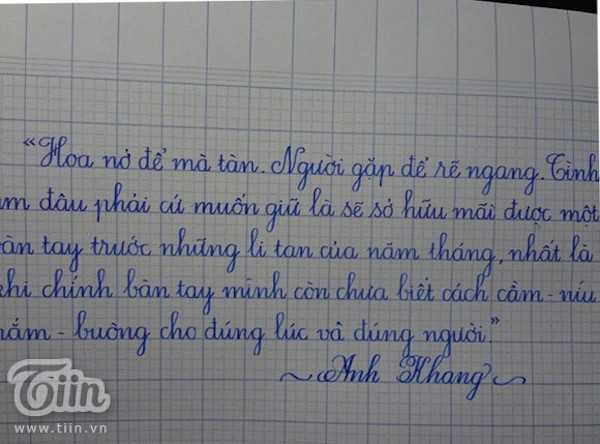 "Hoa nở để mà tàn. Người gặp để rẽ ngang. Tình
đâu phải cứ muốn giữ là sẽ sở hữu mãi được một
tay trước những li tan của năm tháng, nhất là
khi chính bàn tay mình còn chưa biết cách cầm - níu
nắm - buông cho đúng lúc và đúng người."
~ Anh Khang ~
Tiin
www.tiin.vn